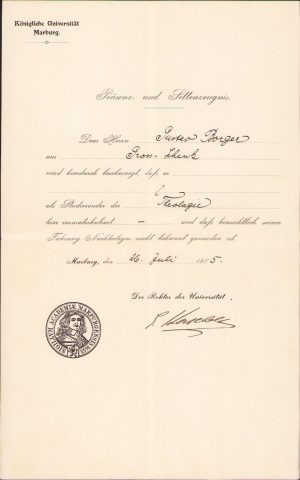 Königliche Universität
Marburg.
Präsenz- und Sittenzeugnis.
Dem Herrn Gustav Borger
aus Gross-Schenk
wird hierdurch bescheinigt, daß er
als Studierender der Theologie
hier immatrikuliert – und daß hinsichtlich seiner
Führung Nachteiliges nicht bekannt geworden ist.
Marburg, den 26. Juli 1905.
Der Rektor der Universität.